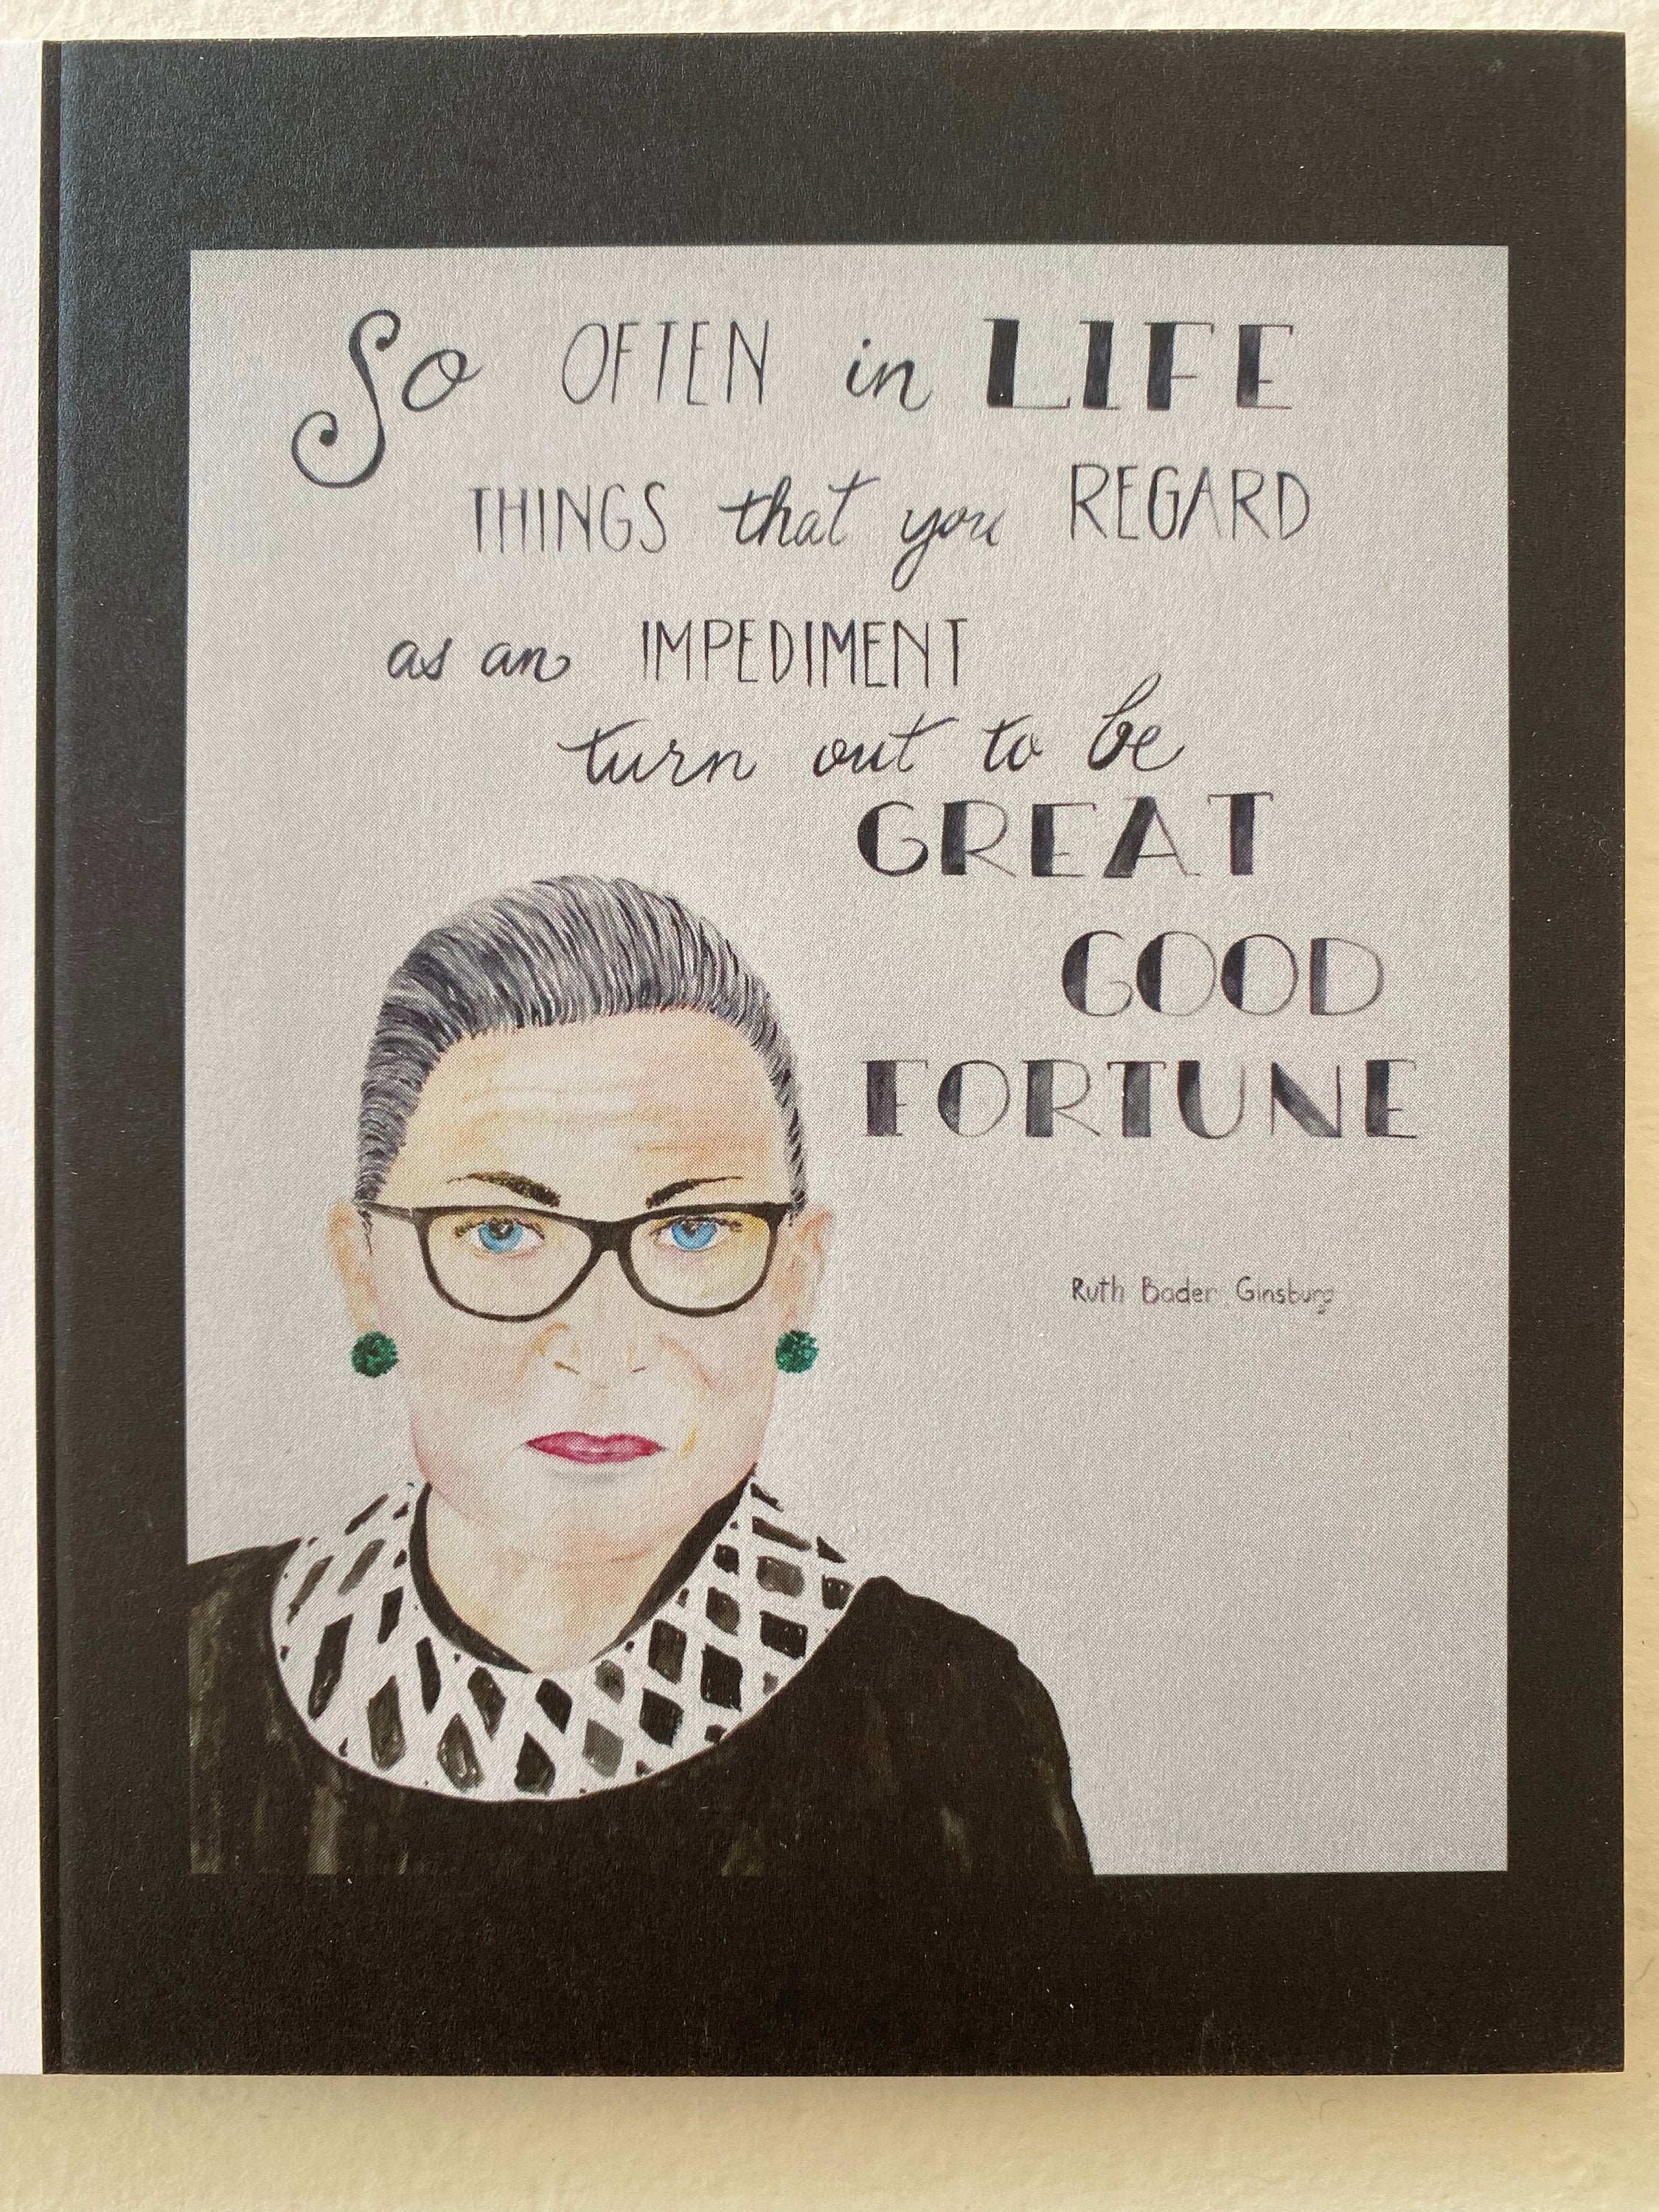 So OFTEN in LIFE
THINGS that you REGARD
as an IMPEDIMENT
turn out to be
GREAT
GOOD
FORTUNE
Ruth Bader Ginsburg